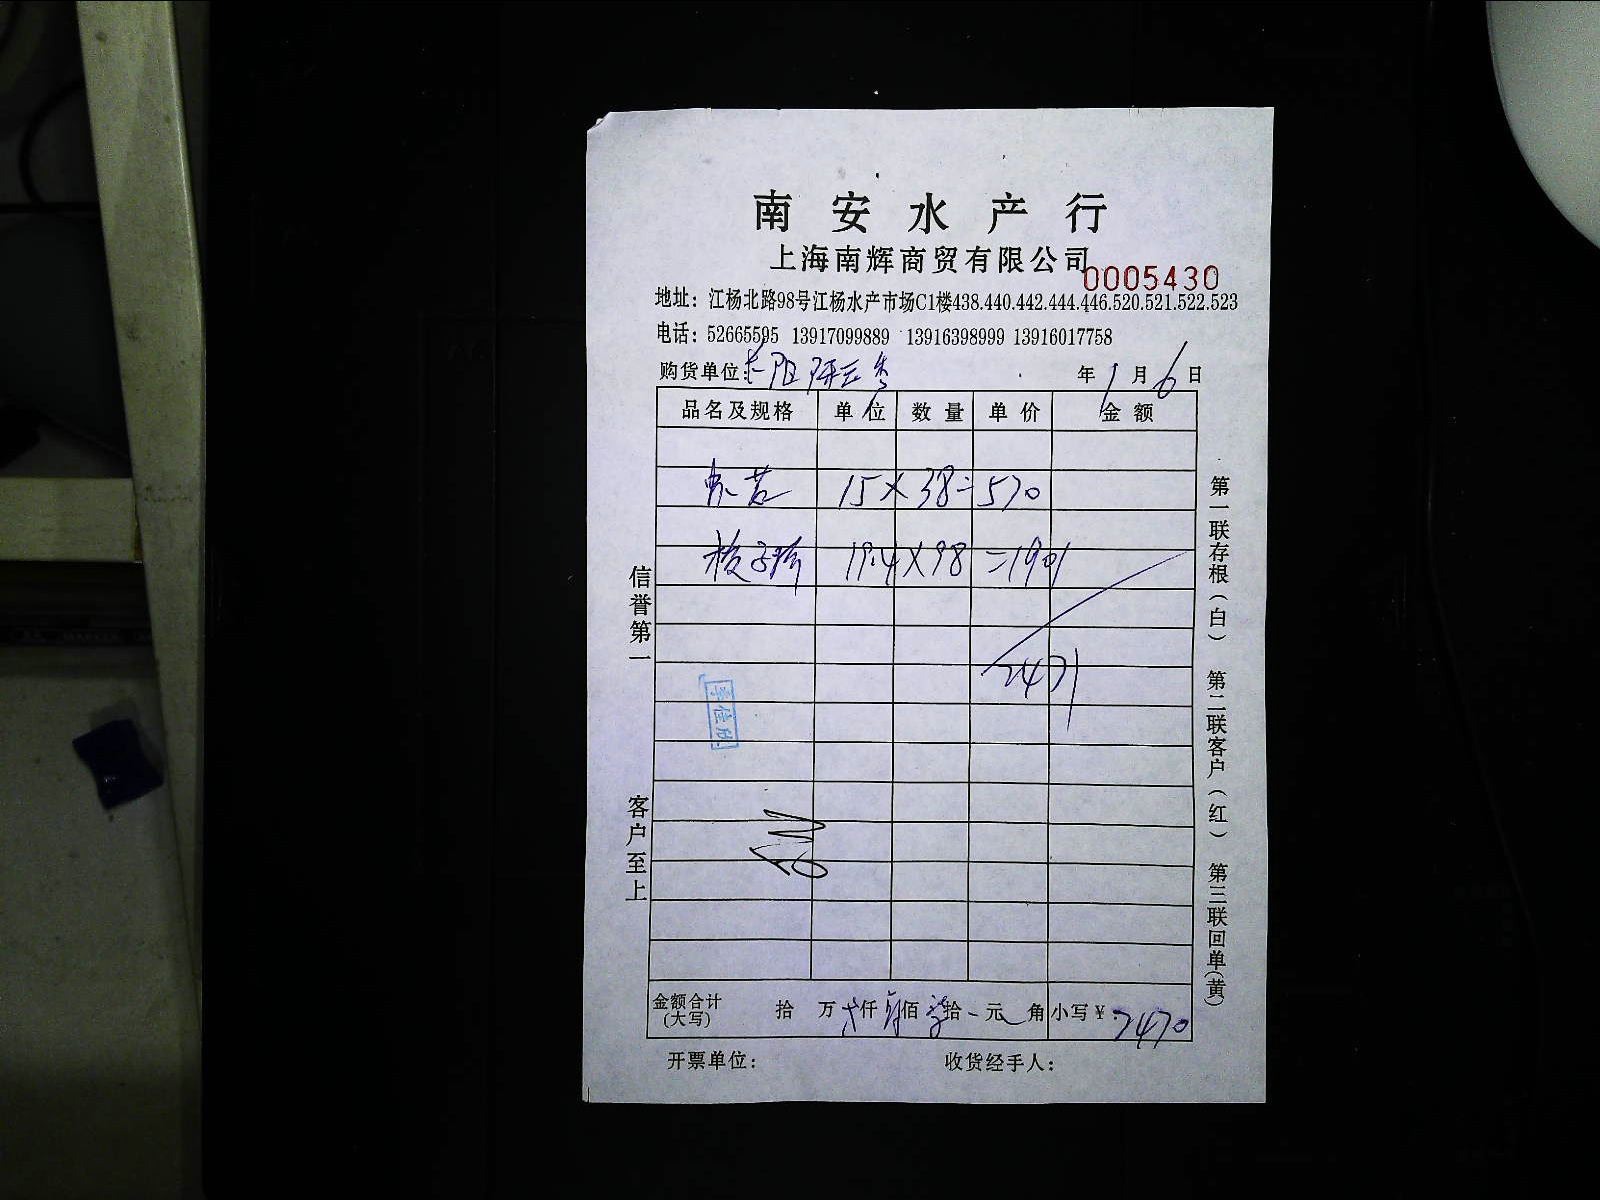 南安水产行
上海南辉商贸有限公司
0005430
地址：江杨北路98号江杨水产市场C1楼438.440.442.444.446.520.521.522.523
电话：52665595 13917099889 13916398999 13916017758
购货单位： 年1月6日
品名及规格 单位 数量 单价 金额
15×38=570
19.4×98=1901
2471
金额合计(大写) 拾 万 仟 佰 柒拾 元 角 小写￥：2470
开票单位： 收货经手人：
信誉第一
客户至上
第一联存根(白) 第二联客户(红) 第三联回单(黄)